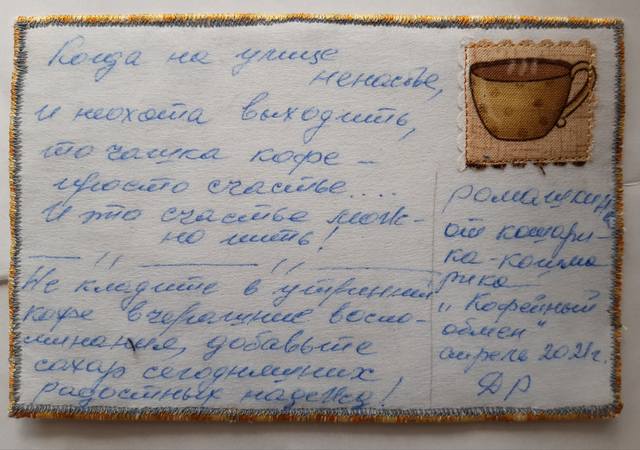 Когда на улице
ненастье,
и неохота выходить,
то чашка кофе –
просто счастье....
И это счастье мож-
но пить!
— " — " —
Не кладите в утренний
кофе вчерашние воспо-
минания, добавьте
сахар сегодняшних
радостных надежд!
ромашкин
от кошари-
ка-кошма
рика
"Кофейный
обмен"
апрель 2021г.
ДР